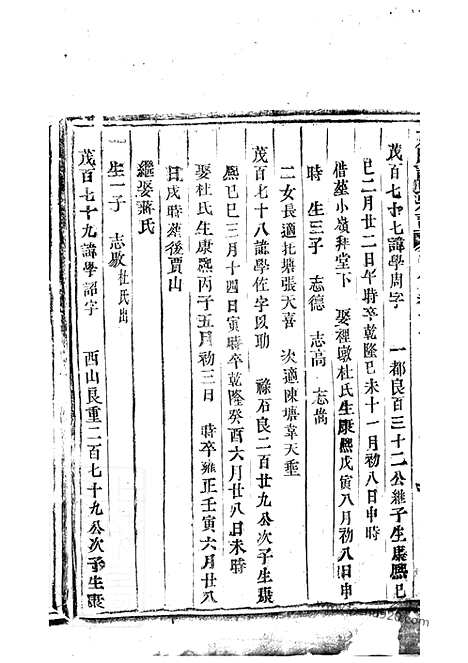 茂百七十七諱學周字 一都良百三十二公繼子生康熙己
巳二月廿二日午時卒乾隆己未十一月初八日申時
偕葬小嶺拜堂下 娶裡墩杜氏生康熙戊寅八月初八日申
時 生三子 志德 志高 志尚
二女長適圠塘張天喜 次適陳塘韋天埀
茂百七十八諱學佐字以功 祿石良二百廿九公次子生康
熙己巳三月十四日寅時卒乾隆癸酉六月廿八日未時
娶杜氏生康熙丙子五月初三日 時卒雍正壬寅六月廿八
日戌時葬後賈山
繼娶蔣氏
生一子 志敬杜氏出
茂百七十九諱學詔字 西山良重二百七十九公次子生康